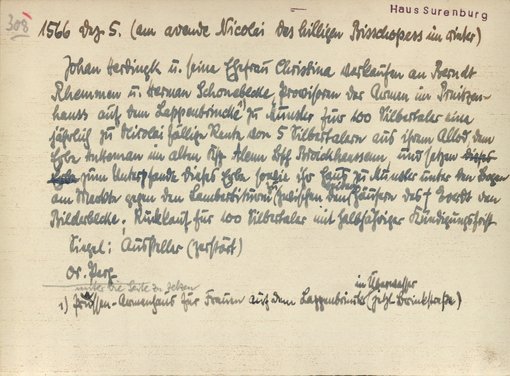 Haus Surenburg
308
1566 Dez. 5. (am avende Nicolai des hilligen Bisschopess im winter)
Johan Herdingk u. seine Ehefrau Christina verkaufen an Berndt
Rhemmen u. Herman Schonebecke, Provisoren der Armen im
hauss auf dem Lappenbrincke 1) zu Münster für 100 Silbertaler eine
jährlich zu Nicolai fällige Rente von 5 Silbertalern aus ihrem Allod dem
Erbe im alten Ksp. und setzen dieses
Erbe zum Unterpfande dieses Erbe sowie ihr Haus zu Münster unter den Bogen
am Markte gegen den Lamberti zwischen den Häusern des † Everdt von
Bilderbecke. Rücklauf für 100 Silbertaler mit halbjähriger Kündigungsfrist
Siegel: Aussteller (zerstört)
Or. Perg.
unter die Seite zu setzen
in Überwasser
1) -Armenhaus für Frauen auf dem Lappenbrink (jetzt Brinkstraße)